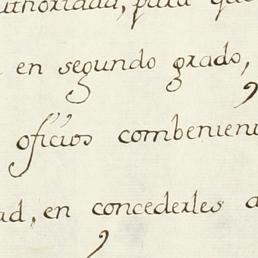 authoridad, para que
en segundo grado,
oficios combenien
ad, en concederles a